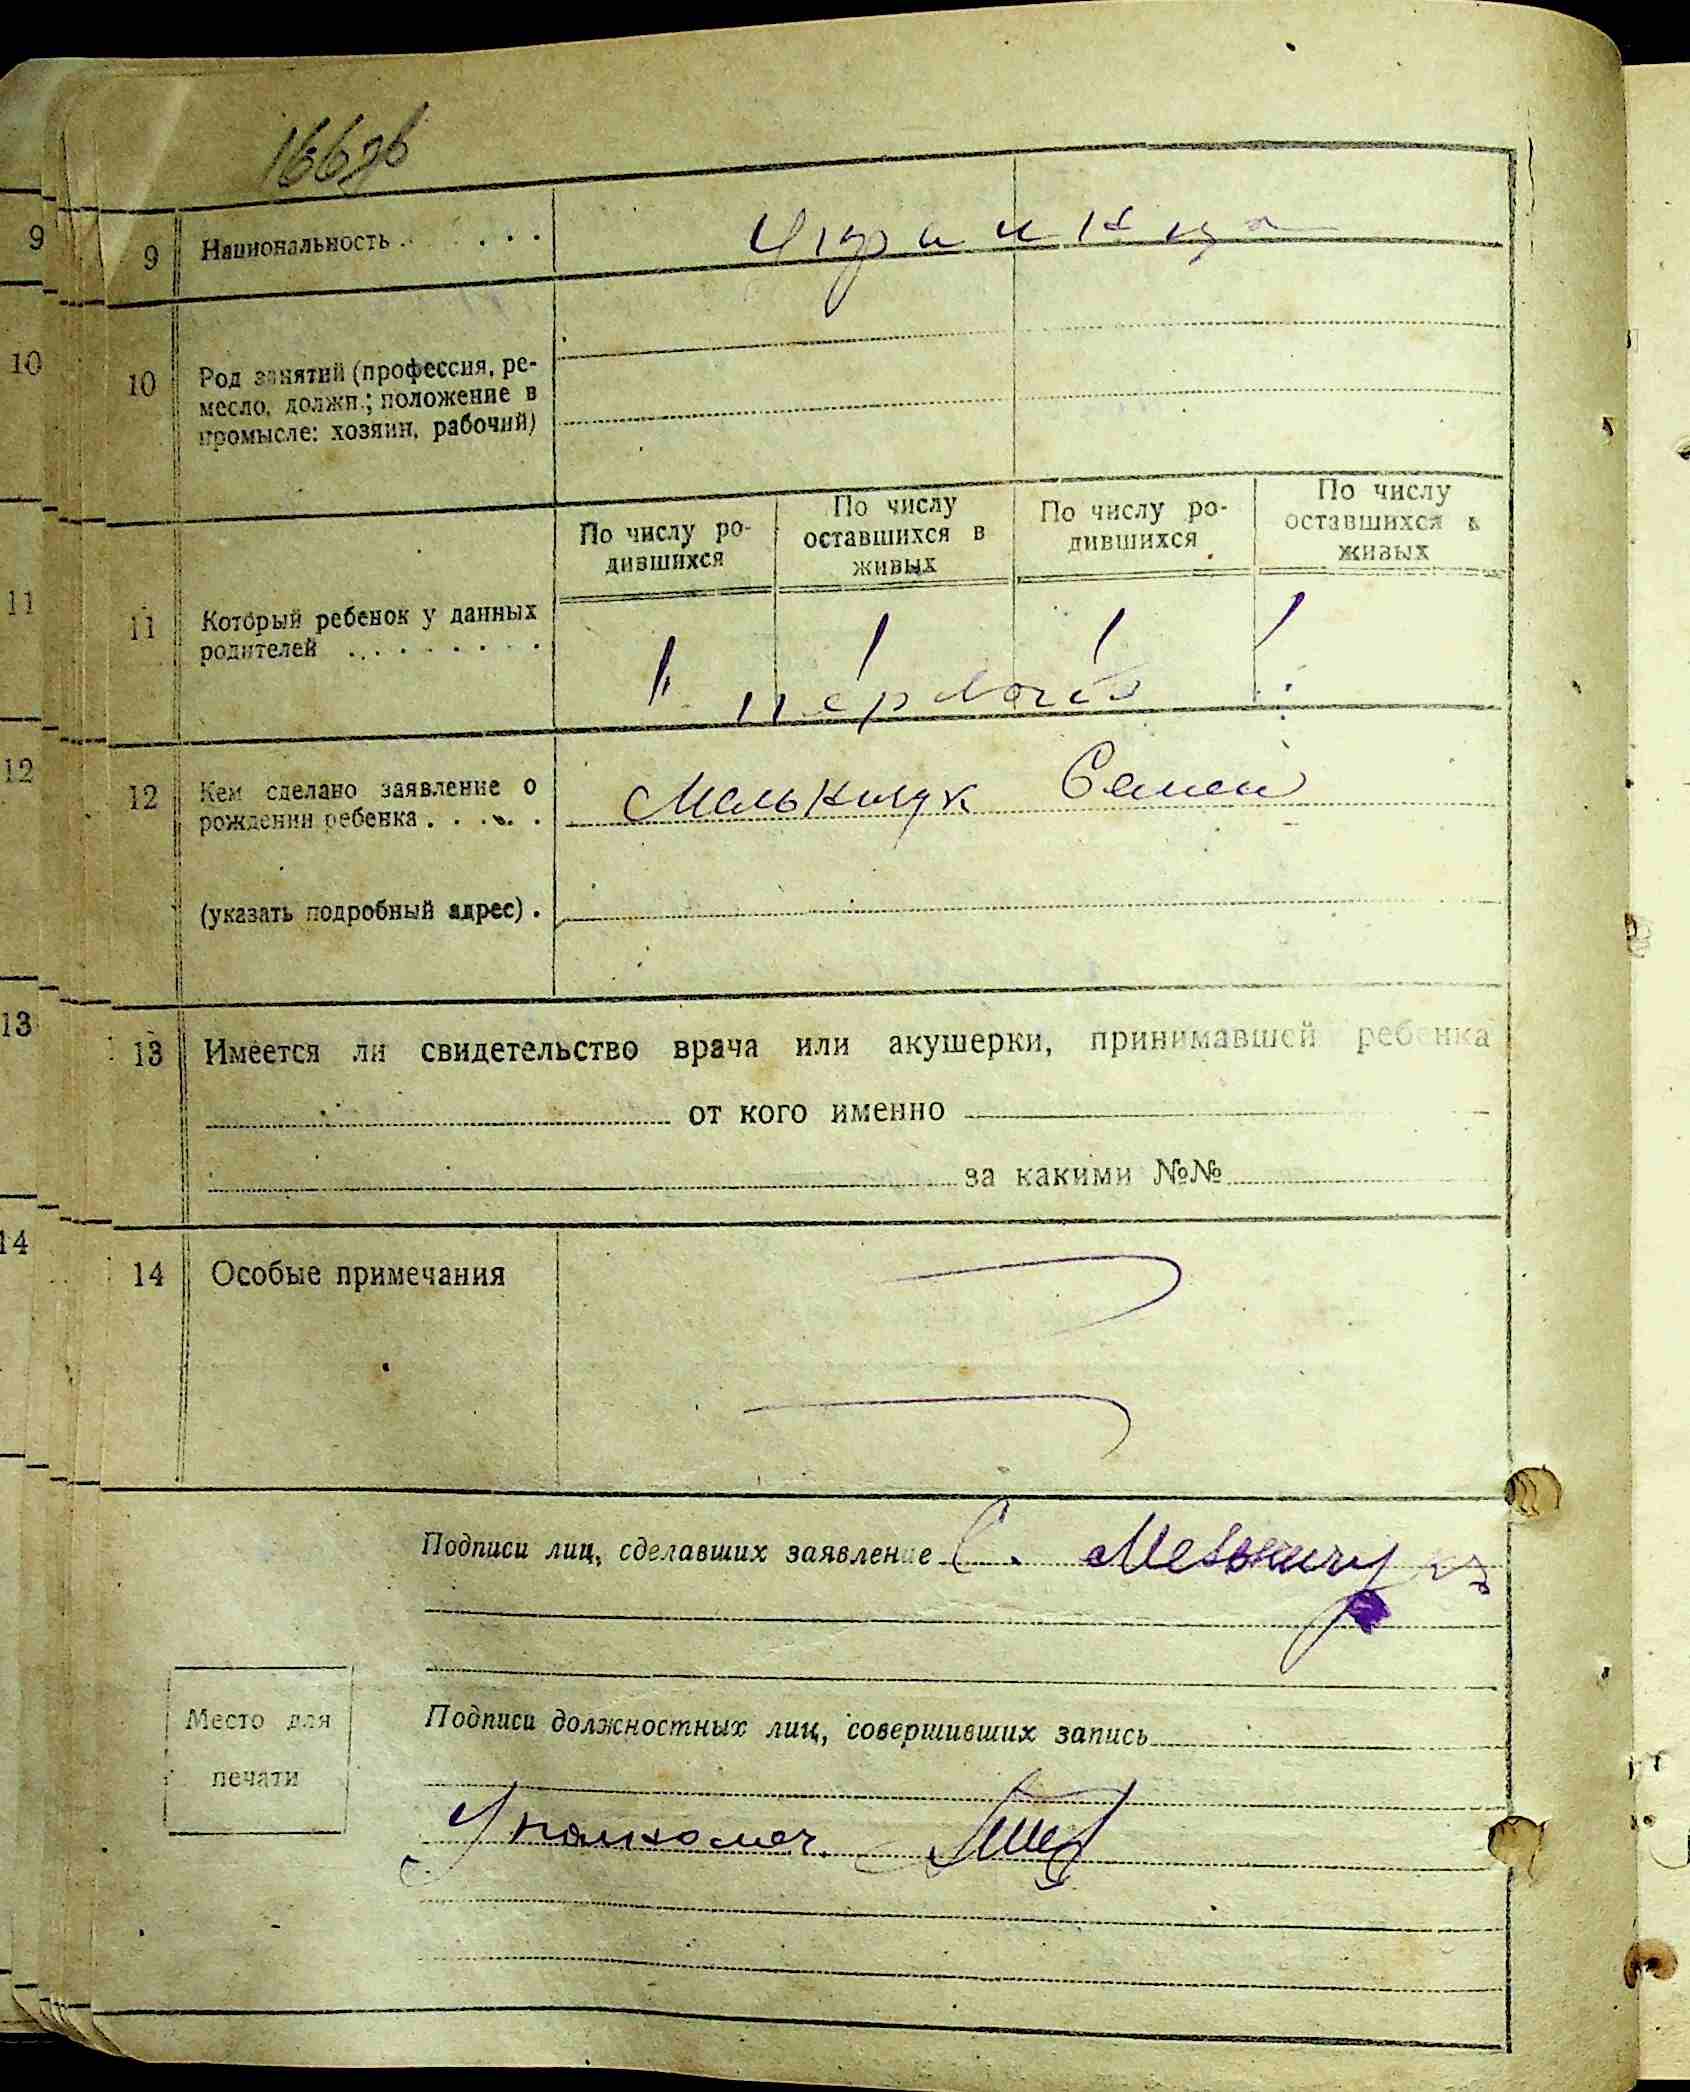 166зв
9 9 Национальность . . . . . . Украинцы
10 10 Род занятий (профессия, ре-
месло, должн.; положение в
промысле: хозяин, рабочий)
По числу ро-
дившихся
По числу
оставшихся в
живых
По числу ро-
дившихся
По числу
оставшихся в
живых
11 11 Который ребенок у данных
родителей . . . . . . . . .
12 12 Кем сделано заявление о
рождении ребенка . . . . . Мельничук Семен
(указать подробный адрес) .
13 13 Имеется ли свидетельство врача или акушерки, принимавшей ребенка
от кого именно
за какими №№
14 14 Особые примечания
Подписи лиц, сделавших заявление С. Мельничук
Место для
печати
Подписи должностных лиц, совершивших запись
Уполномоч.